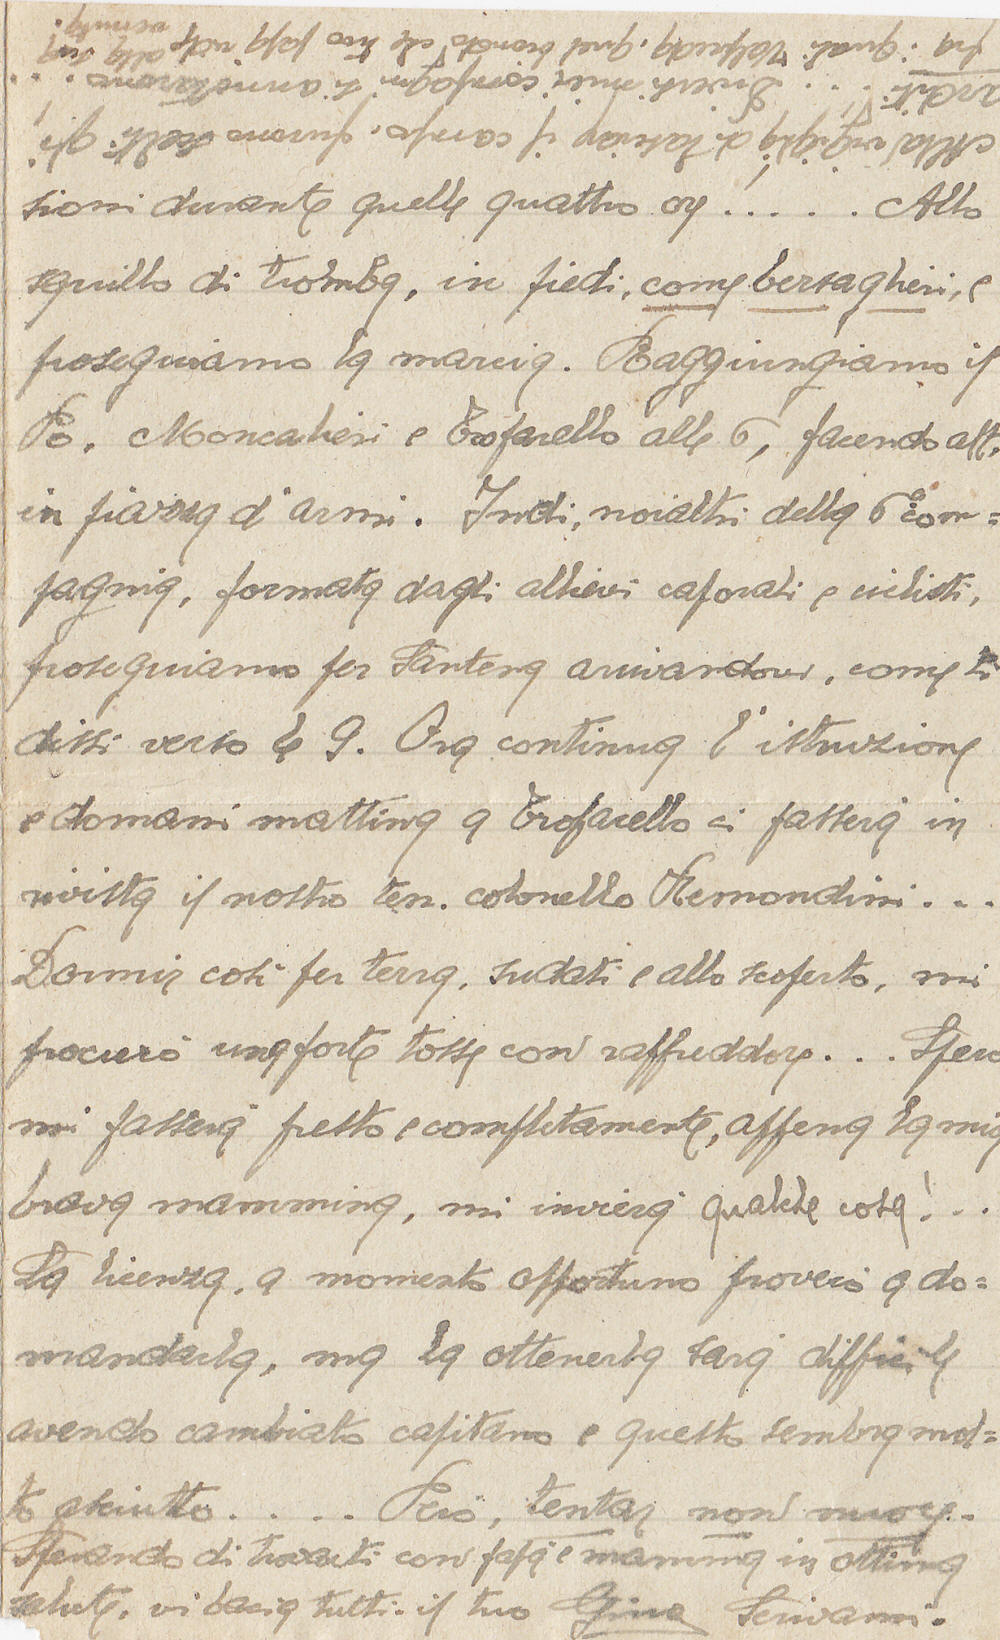 sioni durante quelle quattro ore..... Allo
squillo di tromba, in piedi, come bersaglieri, e
proseguiamo la marcia. Raggiungiamo il
Po, Moncalieri e Trofarello alle 6, facendo alt,
in piazza d'armi. Indi, noialtri della 6ª com=
pagnia, formata dagli allievi caporali e ciclisti,
proseguiamo per Santena arrivandovi, come ti
dissi verso le 9. Ora continua l'istruzione
e domani mattina a Trofarello ci passerà in
rivista il nostro ten. colonello Remondini...
Dormir così per terra, sudati e allo scoperto, mi
procurò una forte tosse con raffreddore... Spero
mi passerà presto e completamente, appena la mia
brava mammina, mi invierà qualche cosa!...
La licenza, a momento opportuno proverò a do=
mandarla, ma la ottenerla sarà difficile
avendo cambiato capitano e questo sembra mol=
to asciutto..... Però, tentar non nuoce.
Sperando di trovarti con papà e mamma in ottima
salute, vi bacia tutti. il tuo Gino Scrivanni.
Alla vigilia di lasciar il campo, furono scelti gli
arditi.... Diversi miei compagni si annotarono...
fra i quali Valfredo, quel biondo che tuo papà vide alla sua
venuta.